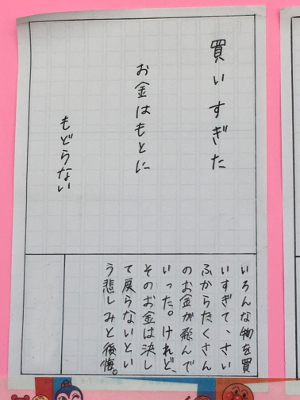 買いすぎた
お金はもとに
もどらない
いろんな物を買
いすぎて、さい
ふからたくさん
のお金が飛んで
いった。けれど、
そのお金は決し
て戻らないとい
う悲しみと後悔。